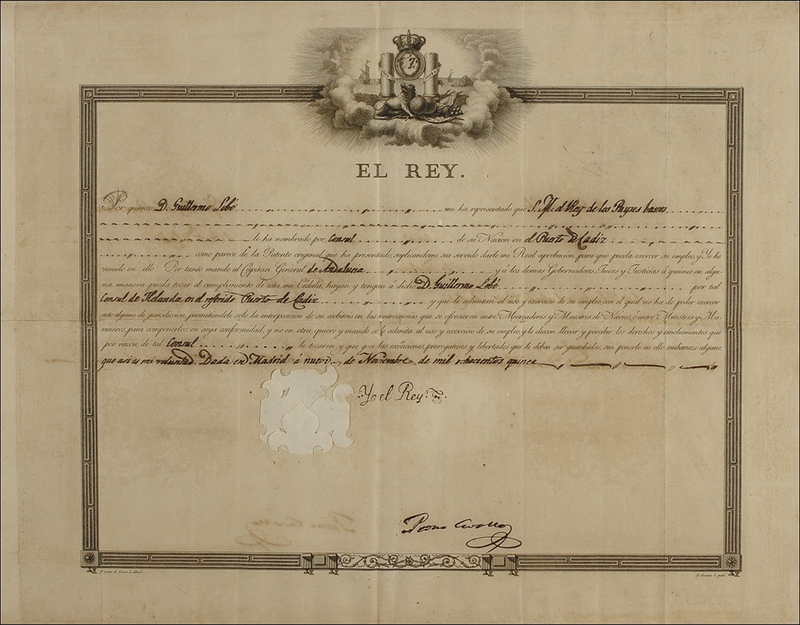 7.
EL REY.
Por quanto D. Guillermo Lobé me ha representado que S. M. el Rey de los Payses baxos
le ha nombrado por Consul de su Nacion en el Puerto de Cadiz
como parece de la Patente original que ha presentado, suplicandome sea servido darle mi Real aprobacion para que pueda exercer su empleo, y Yo he
venido en ello. Por tanto mando al Capitan General de Andalucia y á los demas Gobernadores, Jueces y Justicias á quienes en algu-
na manera pueda tocar el cumplimiento de esta mi Cédula, hayan y tengan á dicho D. Guillermo Lobé por tal
Consul de Holanda en el referido Puerto de Cadiz y que le admitan al uso y exercicio de su empleo, con el qual no ha de poder exercer
acto alguno de jurisdiccion, permitiendole solo la interposicion de su arbitrio en las que se ofrecieren entre Mercaderes y Maestros de Navios, ó entre Maestros y Ma-
rineros, para componerlos: en cuya conformidad, y no en otra, quiero y mando se le admita al uso y exercicio de su empleo, y le dexen llevar y percibir los derechos y emolumentos que
por razon de tal Consul le tocaren, y que goce las exênciones, prerogativas y libertades que le deben ser guardadas, sin ponerle en ello embarazo alguno
que asi es mi voluntad. Dada en Madrid á nueve de Noviembre de mil ochocientos quince
Yo el Rey
Pedro Cevallos